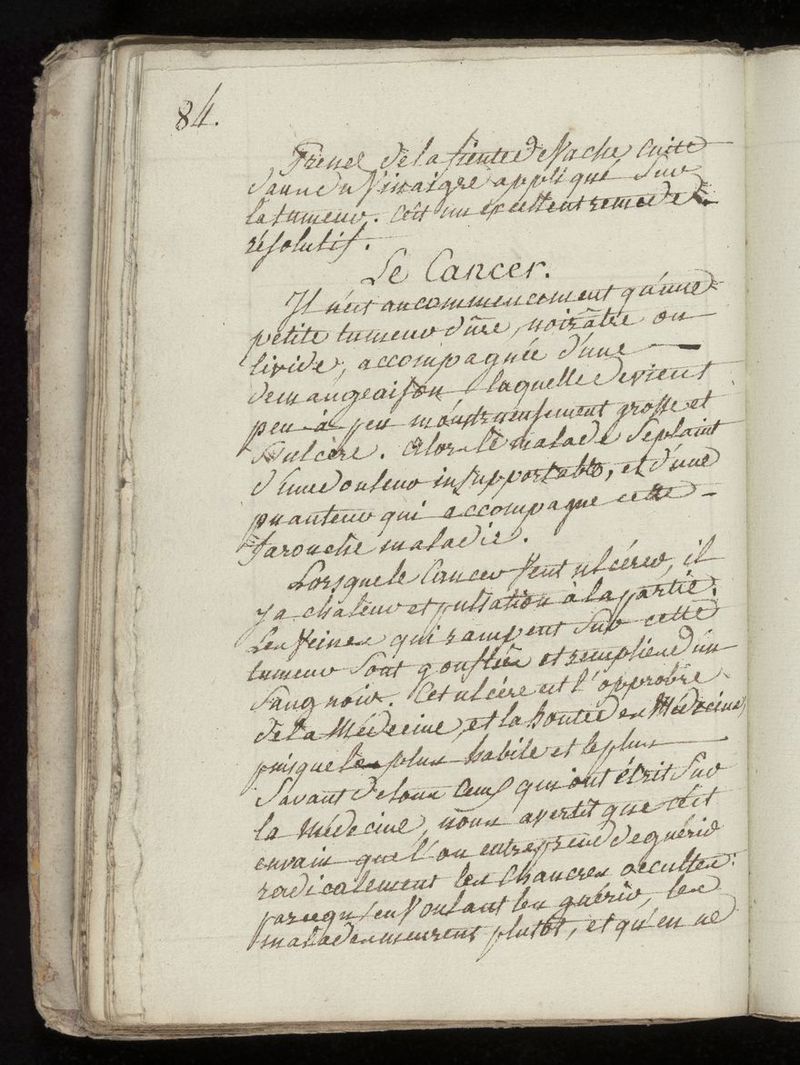 84.
Prenez de la fiente de Vache cuite
dans du Vinaigre appliqué sur
la tumeur. C'est un excellent remede
résolutif.
Le Cancer.
Il n'est au commencement qu'une
petite tumeur dûre, noirâtre ou
livide, accompagnée d'une
demangeaison laquelle devient
peu à peu monstrueusement grosse et
s'ulcère. Alors le malade se plaint
d'une douleur insupportable, et d'une
puanteur qui accompagne cette
farouche maladie.
Lorsque le Cancer veut ulcérer, il
y a chaleur et pulsation à la partie.
Les Veines qui rampent sur cette
tumeur sont gonflées et remplies d'un
sang noir. Cet ulcère est l'opprobre
de la Médecine, et la honte des Médecins,
puisque le plus habile et le plus
savant de tous ceux qui ont écrit sur
la Médecine, nous avertit que c'est
envain que l'on entreprend de guérir
radicalement les Chancres occultes:
parcequ'en voulant les guérir, les
malades meurent plutôt, et qu'en ne